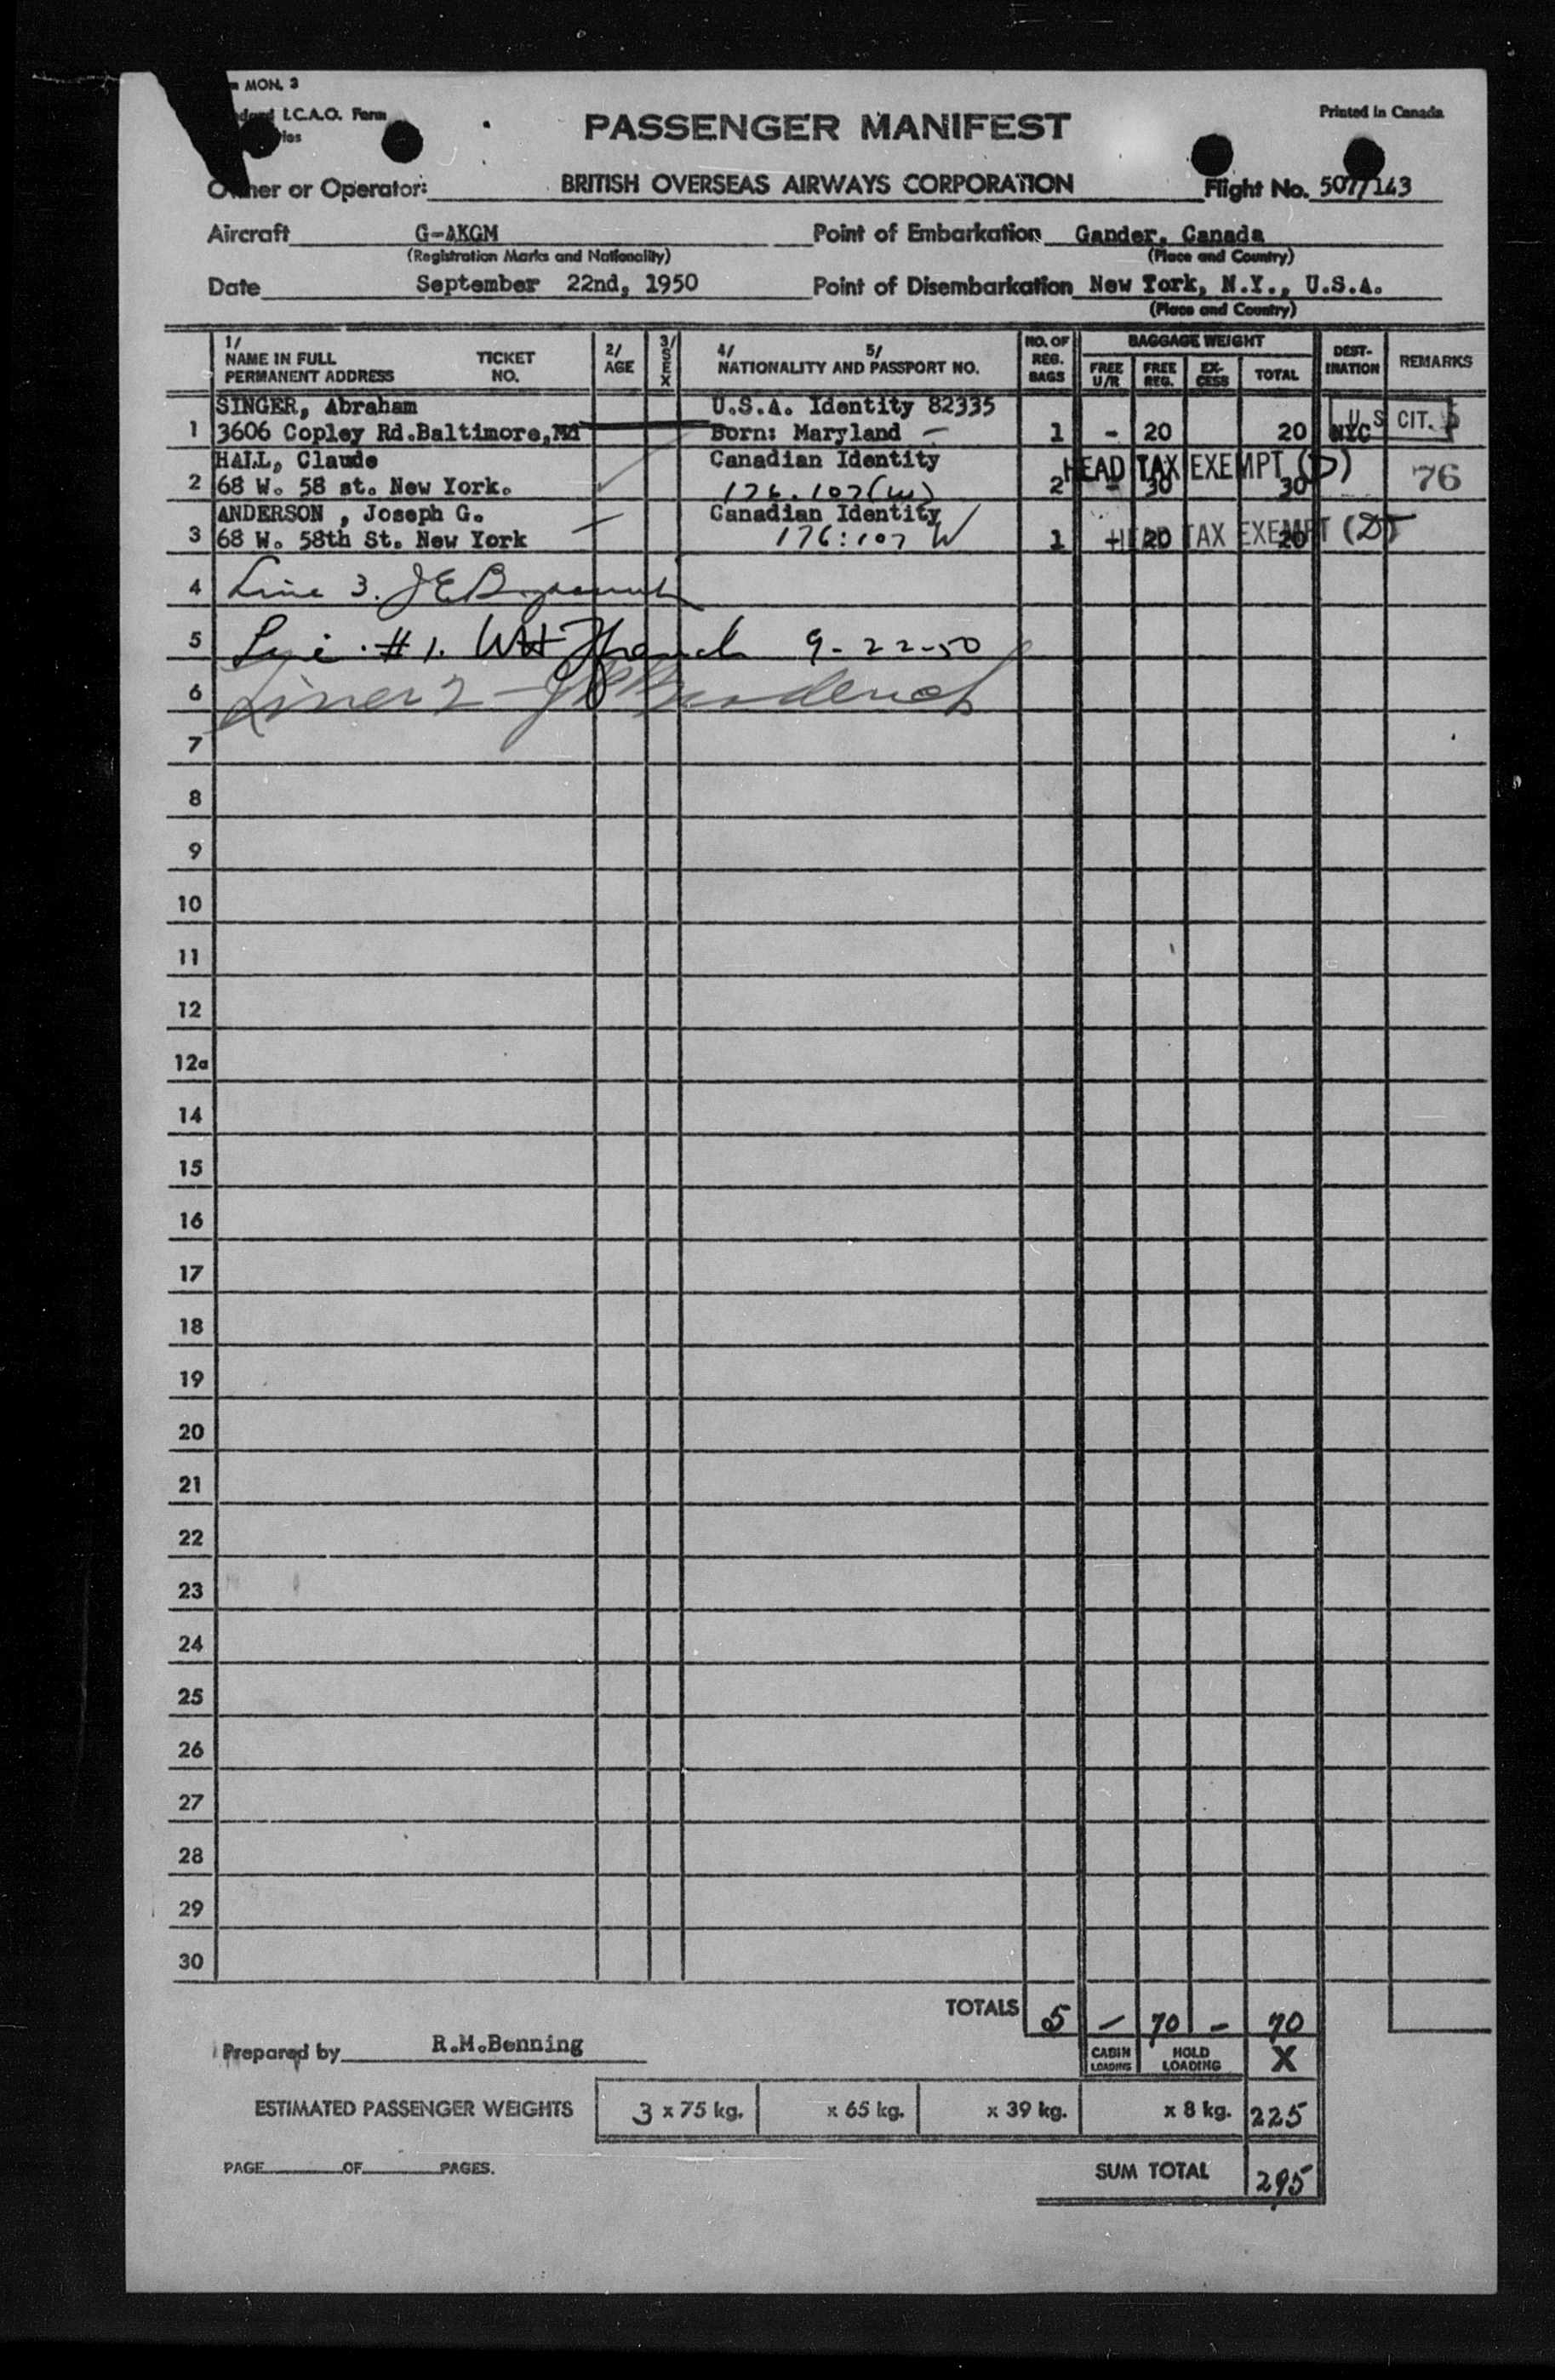 MON. 3
I.C.A.O. Form
PASSENGER MANIFEST
Printed in Canada
Owner or Operator: BRITISH OVERSEAS AIRWAYS CORPORATION Flight No. 507/143
Aircraft G-AKGM Point of Embarkation Gander, Canada
(Registration Marks and Nationality) (Place and Country)
Date September 22nd, 1950 Point of Disembarkation New York, N.Y., U.S.A.
(Place and Country)
1/ NAME IN FULL PERMANENT ADDRESS TICKET NO. 2/ AGE 3/ SEX 4/ 5/ NATIONALITY AND PASSPORT NO. NO. OF REG. BAGS BAGGAGE WEIGHT FREE U/R FREE REG. EX-CESS TOTAL DEST-INATION REMARKS
SINGER, Abraham U.S.A. Identity 82335
1 3606 Copley Rd.Baltimore,Md Born: Maryland - 1 - 20 20 NYC U.S. CIT.
HALL, Claude Canadian Identity HEAD TAX EXEMPT (D)
2 68 W. 58 st. New York. 176.107(W) 2 - 30 30 76
ANDERSON , Joseph G. Canadian Identity
3 68 W. 58th St. New York 176:107 W 1 20 20 HEAD TAX EXEMPT (D)
4 Line 3. J E
5 Line #1. WH 9-22-50
6 Line 2
7
8
9
10
11
12
12a
14
15
16
17
18
19
20
21
22
23
24
25
26
27
28
29
30
TOTALS 5 - 70 - 70
Prepared by R.M.Benning
CABIN LOADING HOLD LOADING X
ESTIMATED PASSENGER WEIGHTS 3 x 75 kg. x 65 kg. x 39 kg. x 8 kg. 225
PAGE OF PAGES. SUM TOTAL 295